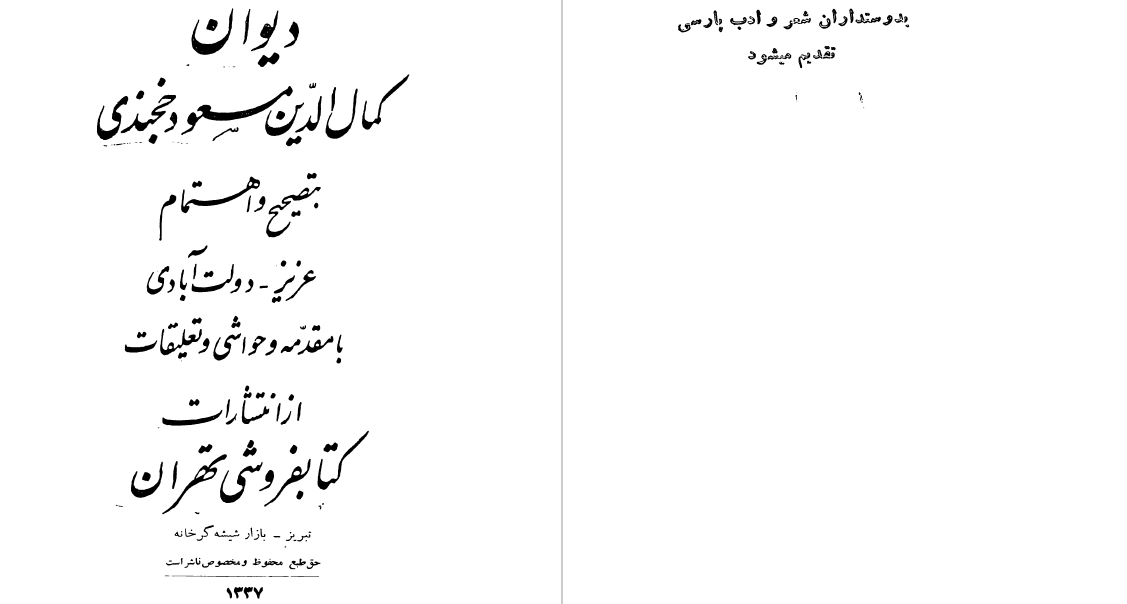 دیوان
کمال الدّین مسعود خجندی
بتصحیح و اهتمام
عزیز - دولت آبادی
با مقدّمه و حواشی و تعلیقات
از انتشارات
کتابفروشی تهران
تبریز - بازار شیشه گرخانه
حق طبع محفوظ و مخصوص ناشر است
۱۳۳۷
بدوستداران شعر و ادب پارسی
تقدیم میشود